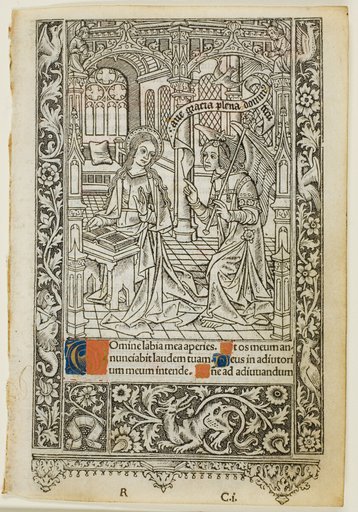 Aue gracia plena dominus tecū
Domine labia mea aperies. Et os meum an-
nunciabit laudem tuam. Deus in adiutori
um meum intende. Dñe ad adiuuandum
R C.i.